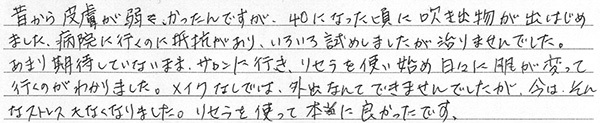 昔から皮膚が弱く、かったんですが、40になった頃に吹き出物が出はじめ
ました。病院に行くのに抵抗があり、いろいろ試めしましたが治りませんでした。
あまり期待していないまま、サロンに行き、リセラを使い始め日々に肌が変って
行くのがわかりました。メイクなしでは、外出なんてできませんでしたが、今は、そん
なストレスもなくなりました。リセラを使って本当に良かったです。